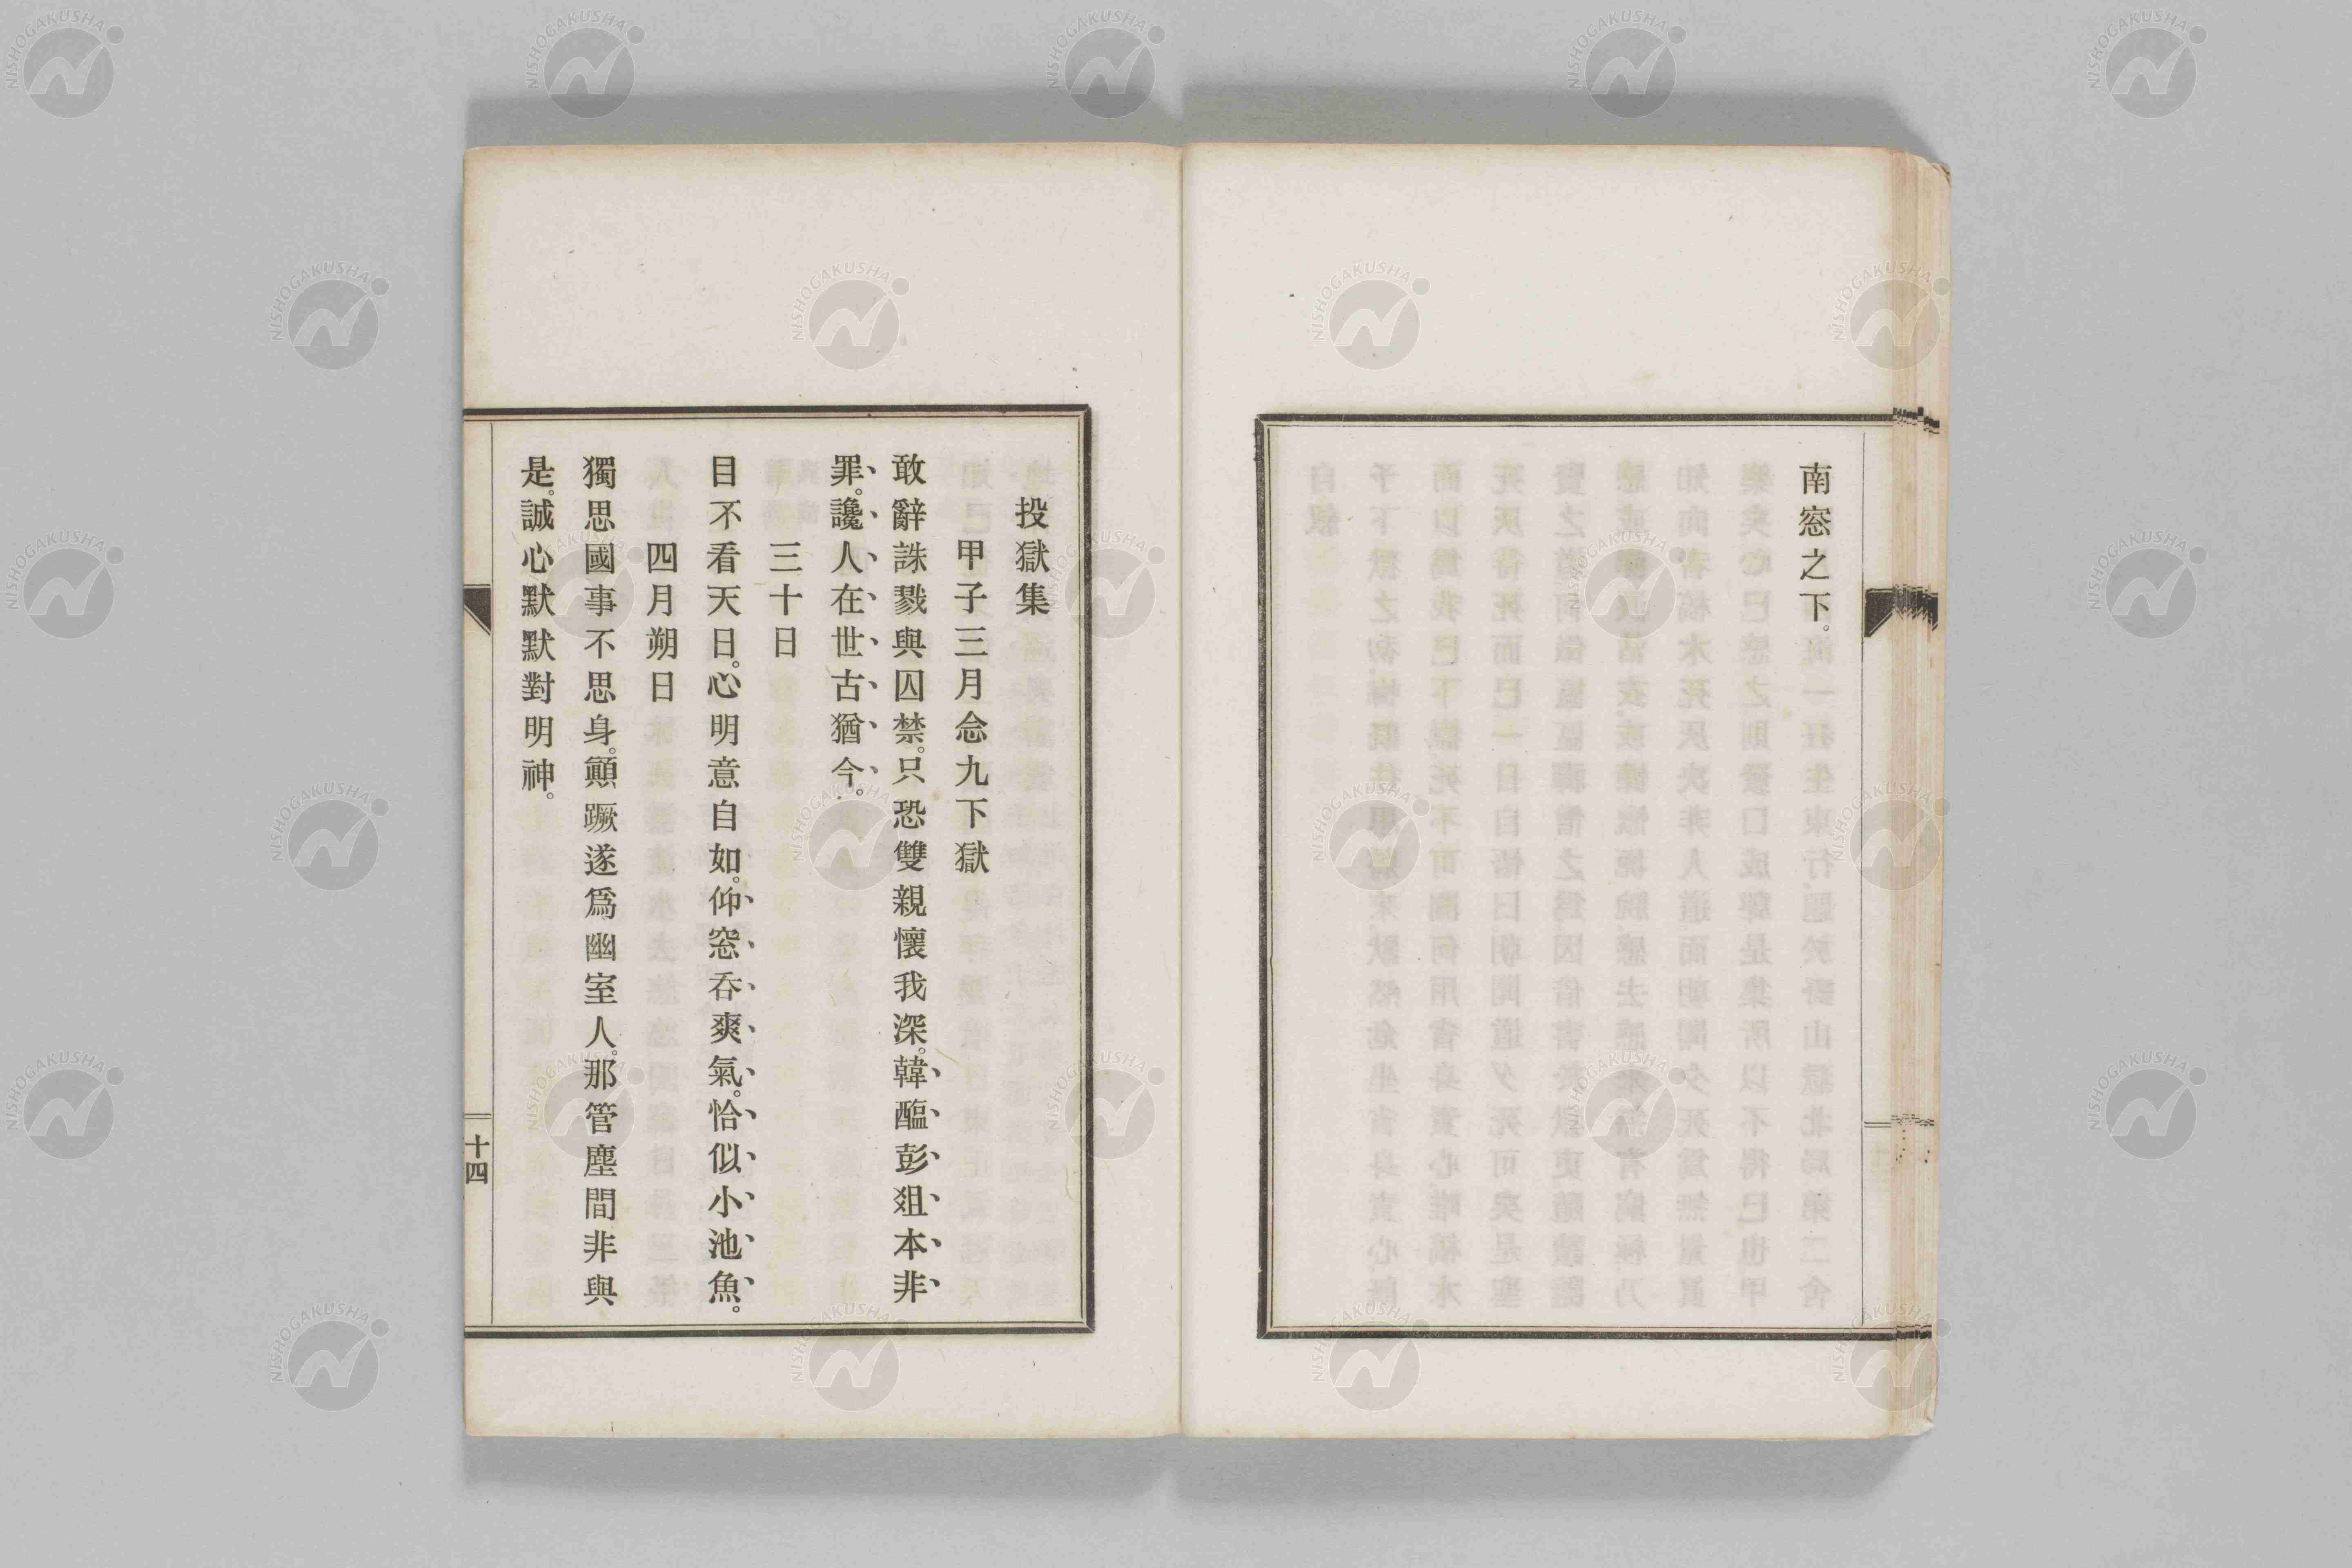 南窓之下。
投獄集
甲子三月念九下獄
敢辭誅戮與囚禁。只恐雙親懷我深。韓醢彭爼本非
罪。讒人在世古猶今。
三十日
目不看天日。心明意自如。仰窓吞爽氣。恰似小池魚。
四月朔日
獨思國事不思身。顚蹶遂爲幽室人。那管塵間非與
是。誠心默默對明神。
十四
NISHOGAKUSHA